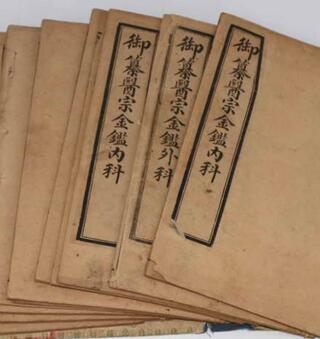 御纂醫宗金鑑內科
御纂醫宗金鑑外科
御纂醫宗金鑑內科